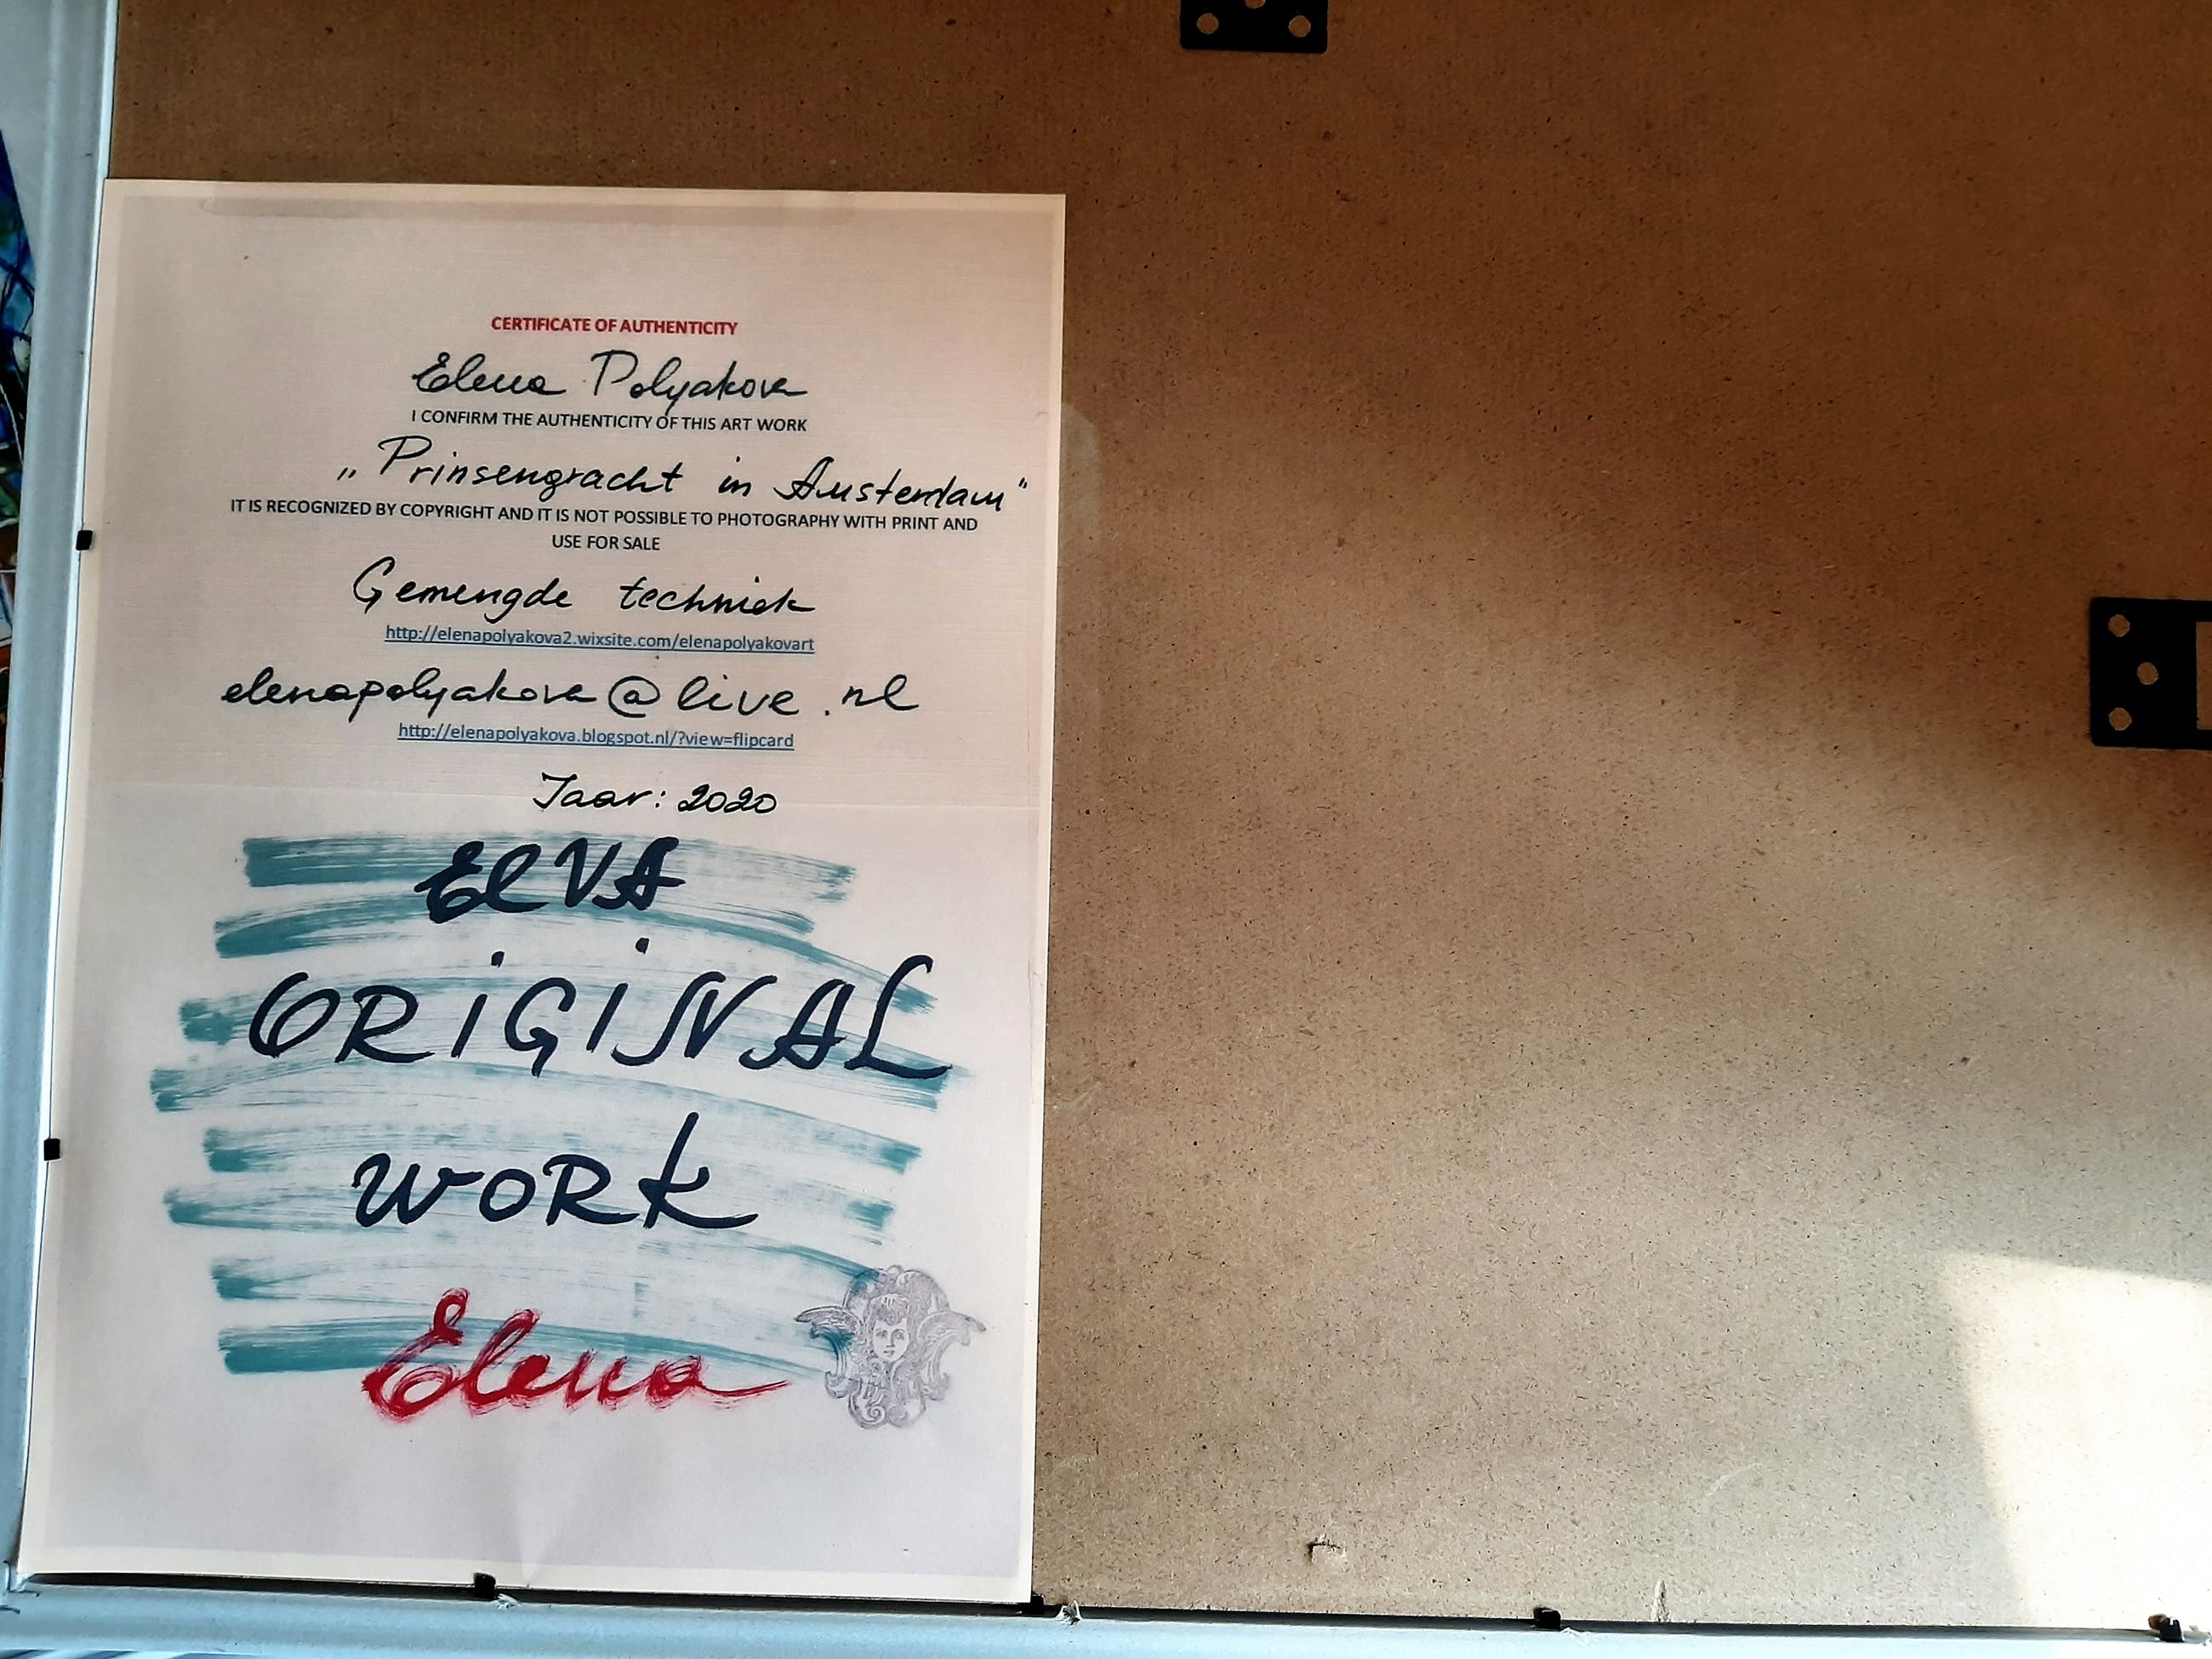 CERTIFICATE OF AUTHENTICITY
Elena Polyakova
I CONFIRM THE AUTHENTICITY OF THIS ART WORK
„Prinsengracht in Amsterdam"
IT IS RECOGNIZED BY COPYRIGHT AND IT IS NOT POSSIBLE TO PHOTOGRAPHY WITH PRINT AND
USE FOR SALE
Gemengde techniek
http://elenapolyakova2.wixsite.com/elenapolyakovart
elenapolyakova@live.nl
http://elenapolyakova.blogspot.nl/?view=flipcard
Jaar: 2020
ElVA
ORiGiNAL
WORK
Elena